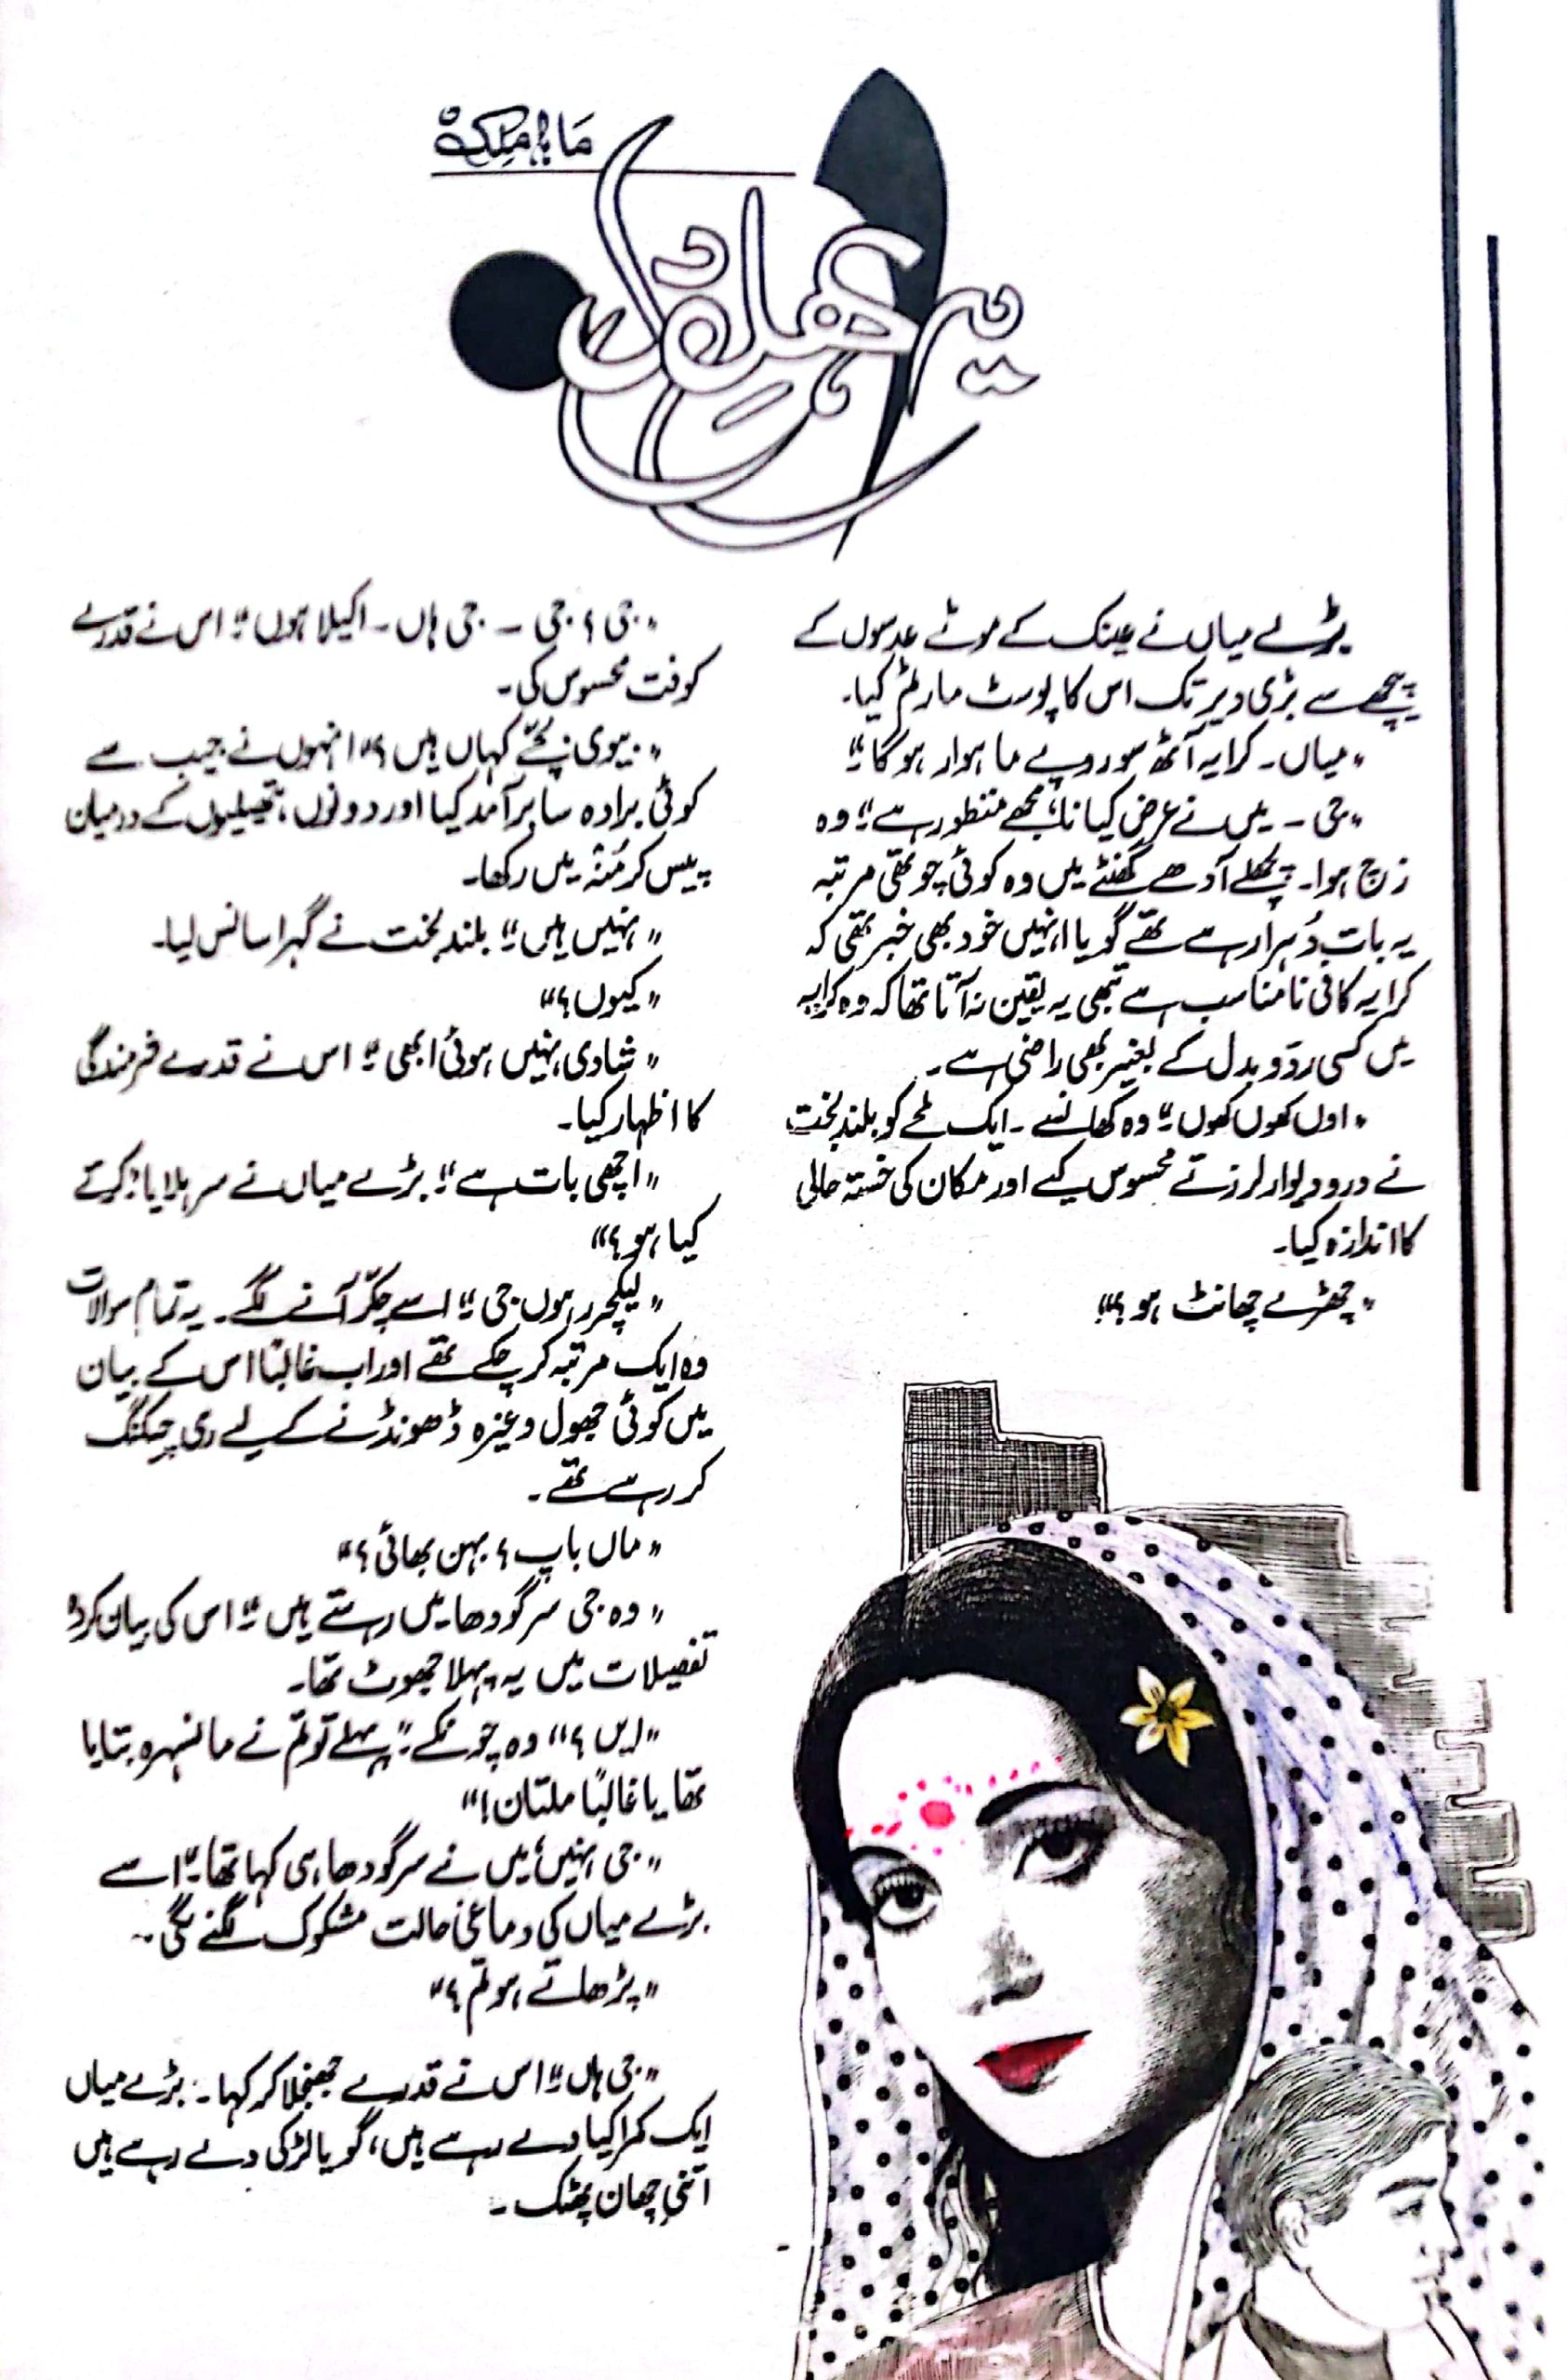 ماہا ملک
بڑے میاں نے عینک کے موٹے عدسوں کے
پیچھے سے بڑی دیر تک اس کا پوسٹ مارٹم کیا۔
”میاں۔ کرایہ آٹھ سو روپے ماہوار ہو گا۔“
”جی۔ میں نے عرض کیا نا، مجھے منظور ہے۔“ وہ
زچ ہوا۔ پچھلے آدھے گھنٹے میں وہ کوئی چوتھی مرتبہ
یہ بات دُہرا رہے تھے گویا انہیں خود بھی خبر تھی کہ
کرایہ کافی نامناسب ہے تبھی یہ یقین نہ آتا تھا کہ وہ کرایہ
میں کسی ردّ و بدل کے بغیر بھی راضی ہے۔
”اوں کھوں کھوں۔“ وہ کھانسے۔ ایک لمحے کو بلند بخت
نے در و دیوار لرزتے محسوس کیے اور مکان کی خستہ حالی
کا اندازہ کیا۔
”چھڑے چھانٹ ہو؟“
”جی؟ جی۔ جی ہاں۔ اکیلا ہوں۔“ اس نے قدرے
کوفت محسوس کی۔
”بیوی بچّے کہاں ہیں؟“ انہوں نے جیب سے
کوئی برادہ سا برآمد کیا اور دونوں ہتھیلیوں کے درمیان
پیس کر مُنہ میں رکھا۔
”نہیں ہیں۔“ بلند بخت نے گہرا سانس لیا۔
”کیوں؟“
”شادی نہیں ہوئی ابھی۔“ اس نے قدرے شرمندگی
کا اظہار کیا۔
”اچھی بات ہے۔“ بڑے میاں نے سر ہلایا ”کرتے
کیا ہو؟“
”لیکچرر ہوں جی۔“ اسے چکّر آنے لگے۔ یہ تمام سوالات
وہ ایک مرتبہ کر چکے تھے اور اب غالباً اس کے بیان
میں کوئی جھول وغیرہ ڈھونڈنے کے لیے ری چیکنگ
کر رہے تھے۔
”ماں باپ؟ بہن بھائی؟“
”وہ جی سرگودھا میں رہتے ہیں۔“ اس کی بیان کردہ
تفصیلات میں یہ پہلا جھوٹ تھا۔
”ایں؟“ وہ چونکے۔ ”پہلے تو تم نے مانسہرہ بتایا
تھا یا غالباً ملتان!“
”جی نہیں، میں نے سرگودھا ہی کہا تھا۔“ اسے
بڑے میاں کی دماغی حالت مشکوک لگنے لگی۔
”پڑھاتے ہو تم؟“
”جی ہاں۔“ اس نے قدرے جھنجلا کر کہا۔ بڑے میاں
ایک کمرا کیا دے رہے ہیں، گویا لڑکی دے رہے ہیں
اتنی چھان پھٹک۔